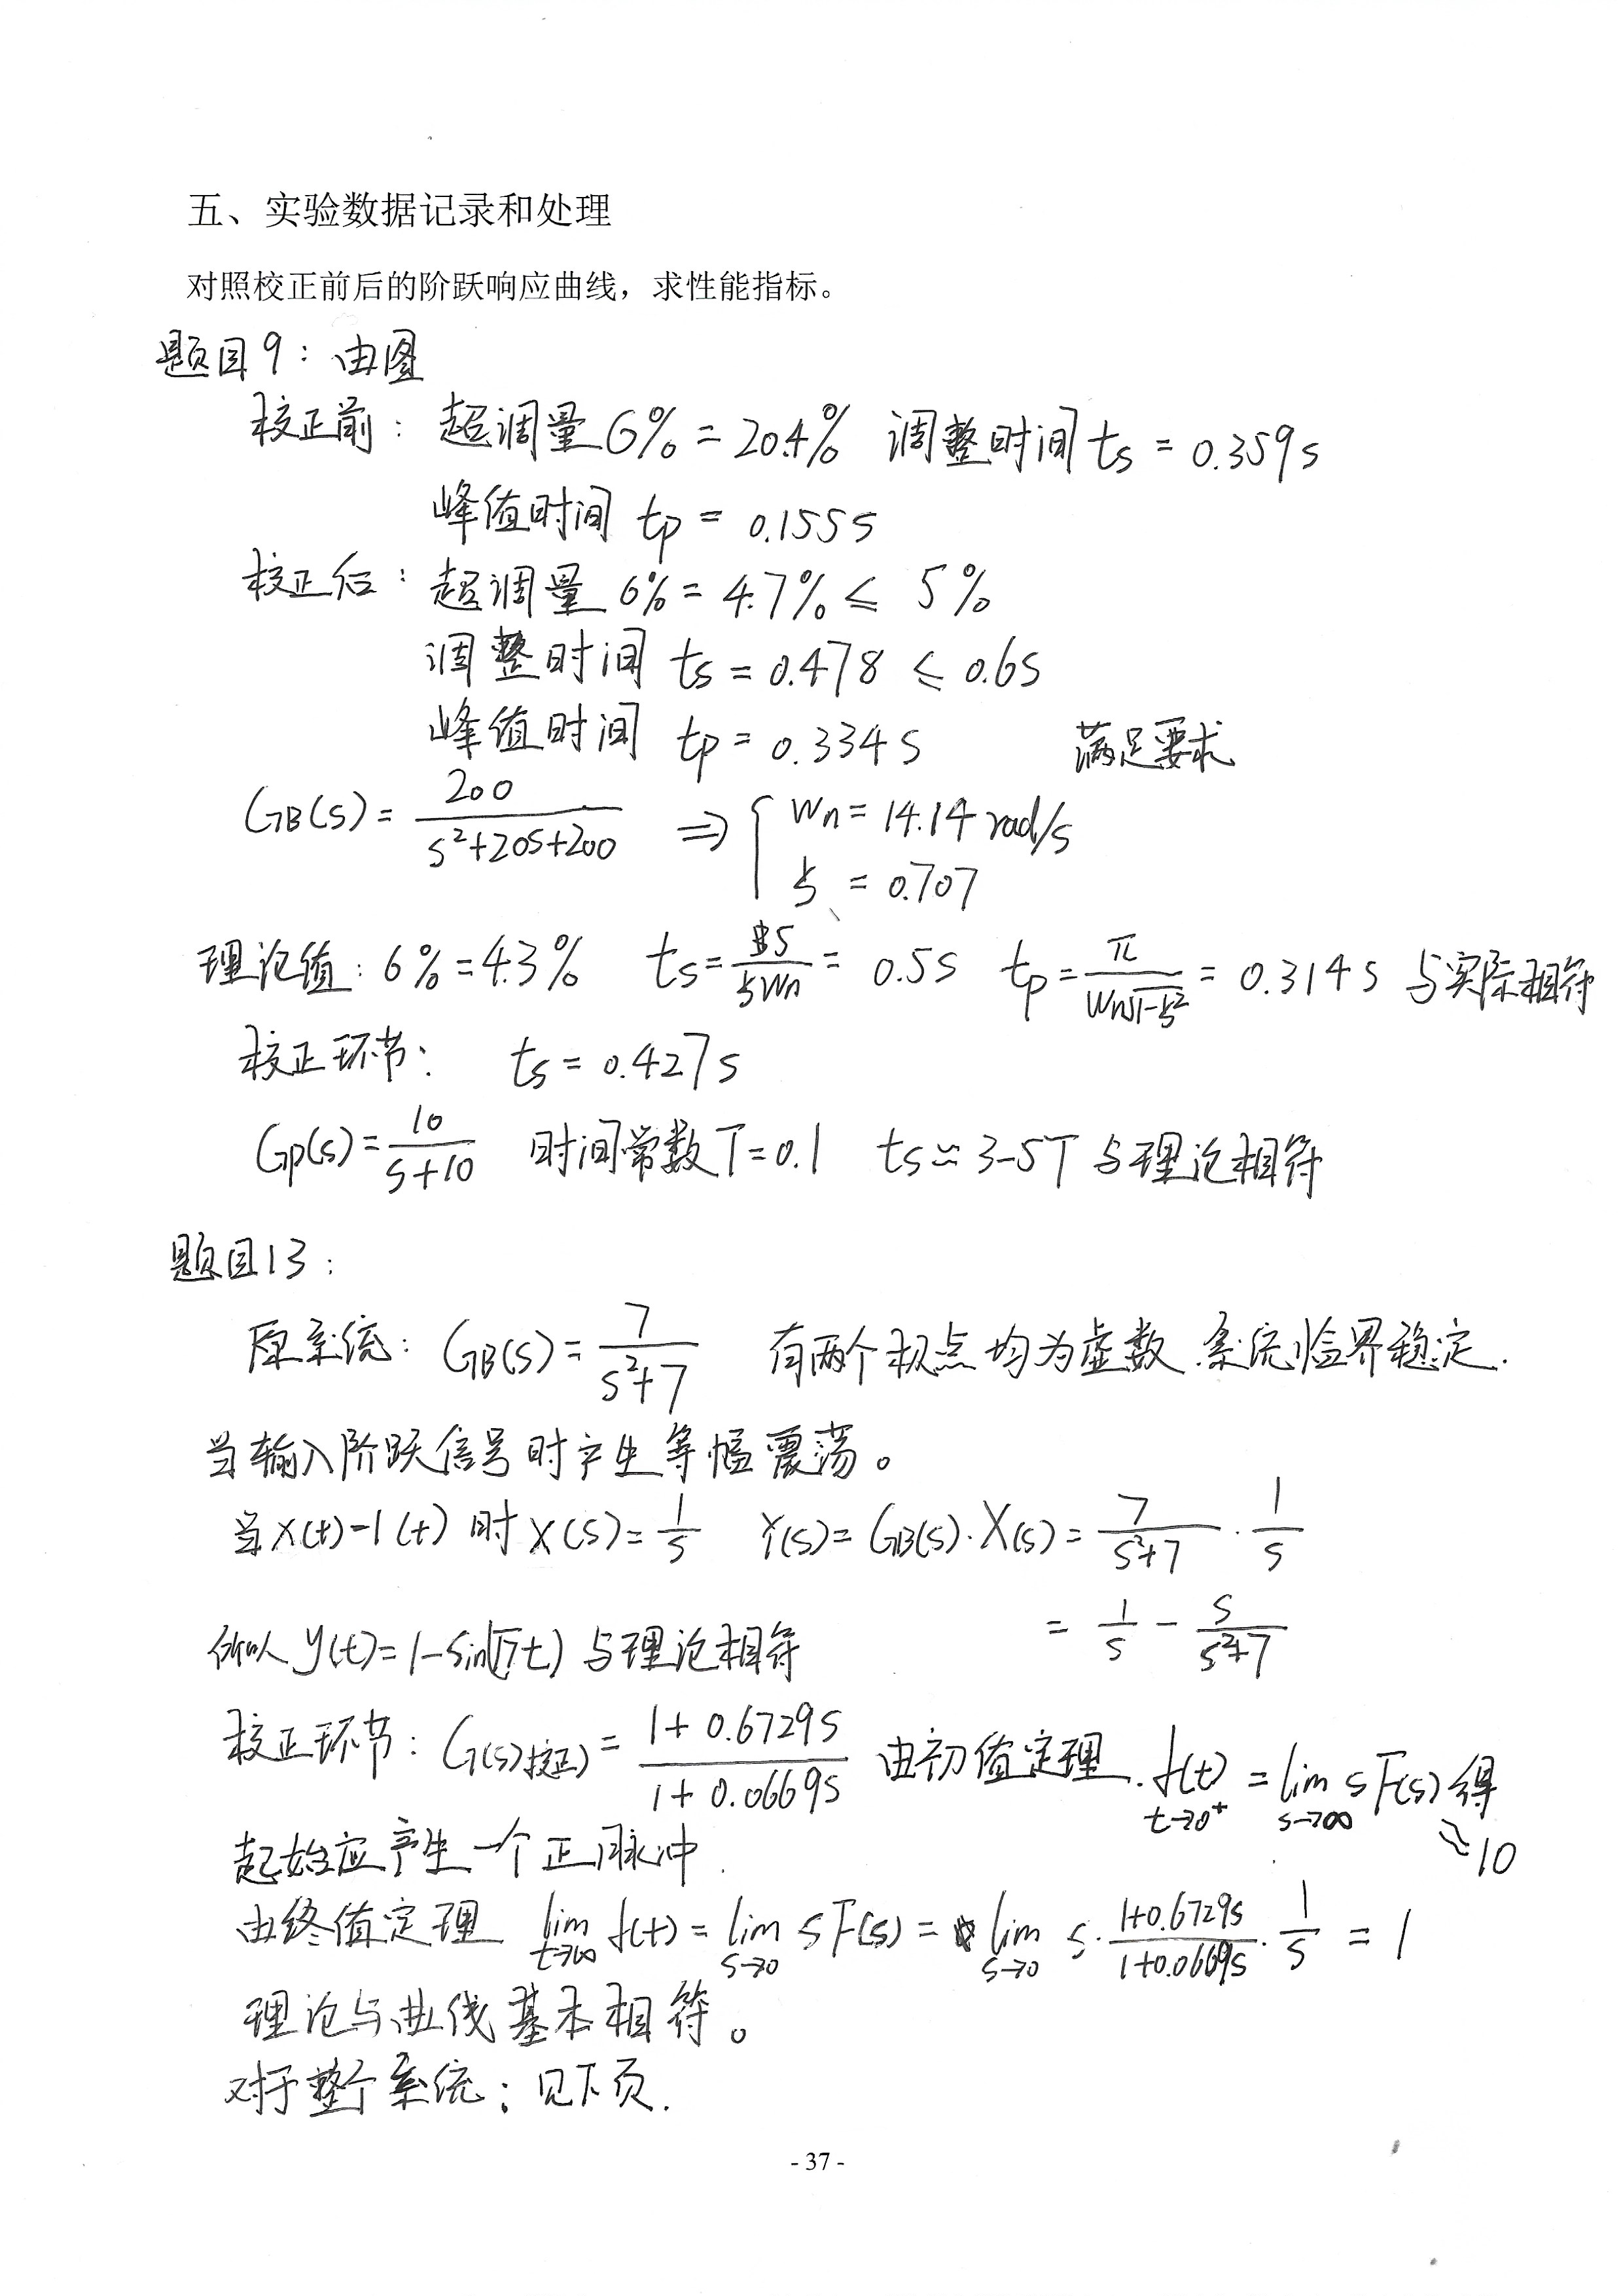 五、实验数据记录和处理
对照校正前后的阶跃响应曲线，求性能指标。
题目9：由图
校正前：超调量 6% = 20.4% 调整时间 ts = 0.359s
峰值时间 tp = 0.155s
校正后：超调量 6% = 4.7% ≤ 5%
调整时间 ts = 0.478 ≤ 0.6s
峰值时间 tp = 0.334s 满足要求
GB(s) = 200/(s²+20s+200) ⇒ { Wn = 14.14 rad/s
ξ = 0.707
理论值：6% = 4.3% ts = 5/(ξWn) = 0.5s tp = π/(Wn√(1-ξ²)) = 0.314s 与实际相符
校正环节： ts = 0.427s
Gp(s) = 10/(s+10) 时间常数T=0.1 ts≈3-5T 与理论相符
题目13：
原系统：GB(s) = 7/(s²+7) 有两个极点均为虚数.系统临界稳定.
当输入阶跃信号时产生等幅震荡。
当X(t)-1(t) 时 X(s) = 1/s Y(s) = GB(s)·X(s) = 7/(s²+7) · 1/s
= 1/s - s/(s²+7)
所以 y(t) = 1-sin(√7t) 与理论相符
校正环节：G(s)校正) = (1+0.6729s)/(1+0.0669s) 由初值定理. f(t) t→0⁺ = lim s→∞ sF(s) 得
≈10
起始应产生一个正脉冲.
由终值定理 lim t→∞ f(t) = lim s→0 sF(s) = lim s→0 s·(1+0.6729s)/(1+0.0669s)·1/s = 1
理论与曲线基本相符。
对于整个系统：见下页.
- 37 -